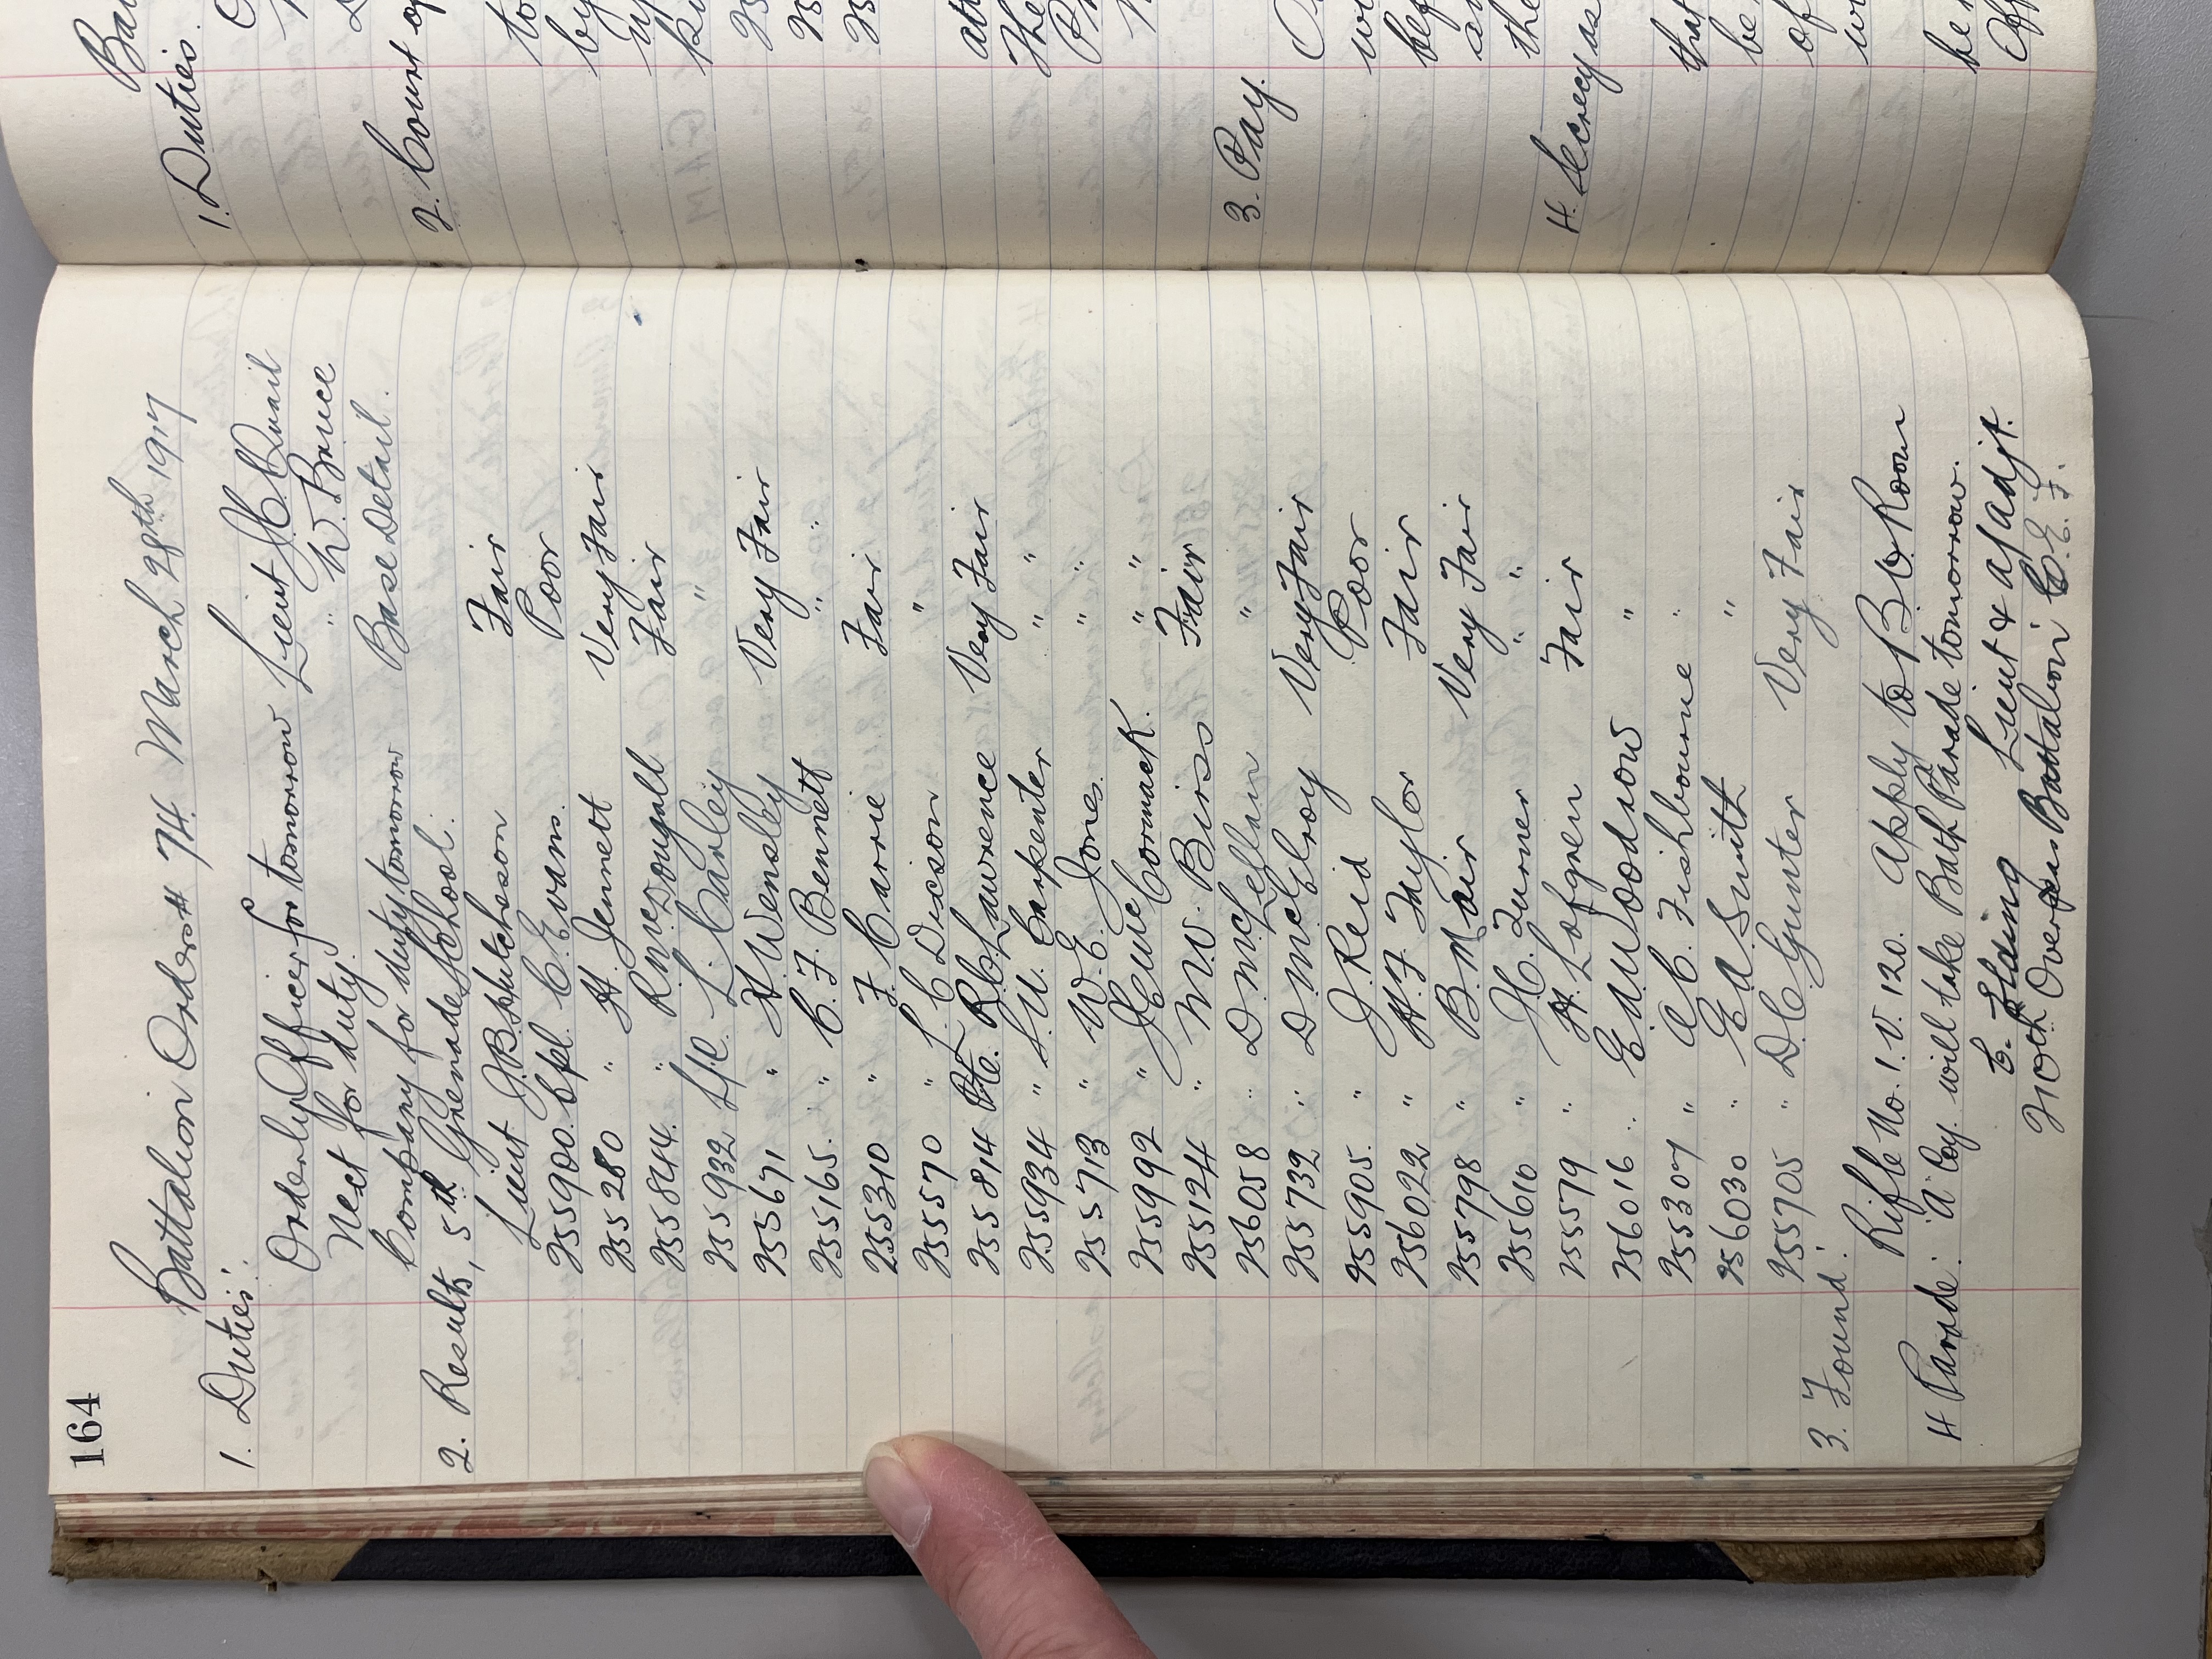 164
Battalion Orders # 74. March 28th 1917
1. Duties.
Orderly Officer for tomorrow Lieut J.C. Quail
Next for duty. " W. Bruce
Company for duty tomorrow Base Detail.
2. Results, 5th Grenade School.
Lieut J.B. Hutcheson Fair
255900. Cpl. C. Evans. Poor
255280 " H. Jennett Very Fair
255844. " R. McDougall Fair
255932 L/c. L. Carley "
255671 " H. Wensley Very Fair
255165. " C. F. Bennett " "
255310 " F. Carrie Fair
255570 " L C Dicson "
255814 Pte. R.G. Lawrence Very Fair
255934 " S.W. Carpenter " "
255713 " W.E. Jones. " "
255992 " Cormack. " "
255124 " M.W. Birss Fair
256058 " D. McLellan "
255732 " D. McElroy Very Fair
255905. " J. Reid Poor
256022 " H.F. Taylor Fair
255798 " B. Mair Very Fair
255610 " J.C. Turner " "
255579 " H. Lofgren Fair
256016 " E.W. Woodrow "
255307 " A C. Fishbourne "
256030 " E A Smith "
255705 " D.C Gunter Very Fair
3. Found. Rifle No. 1. V. 120. Apply to B.O. Room
4 Parade. "A" Coy. will take Bath Parade tomorrow.
Lieut & a/adjt.
210th Overseas Battalion C.E.F.
Bat
1. Duties.
2. Court of
to
by
att
The
3. Pay.
bef
the
4. Secrecy as
that
be
of
be
Off